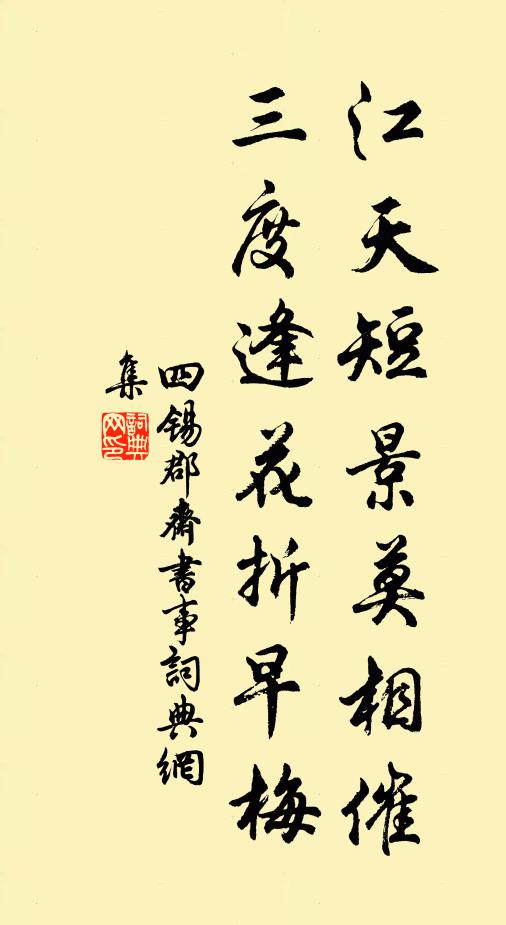 江天短景莫相催
三度逢花折早梅
四锡郡齋書事詞典網
集
詞典
网印